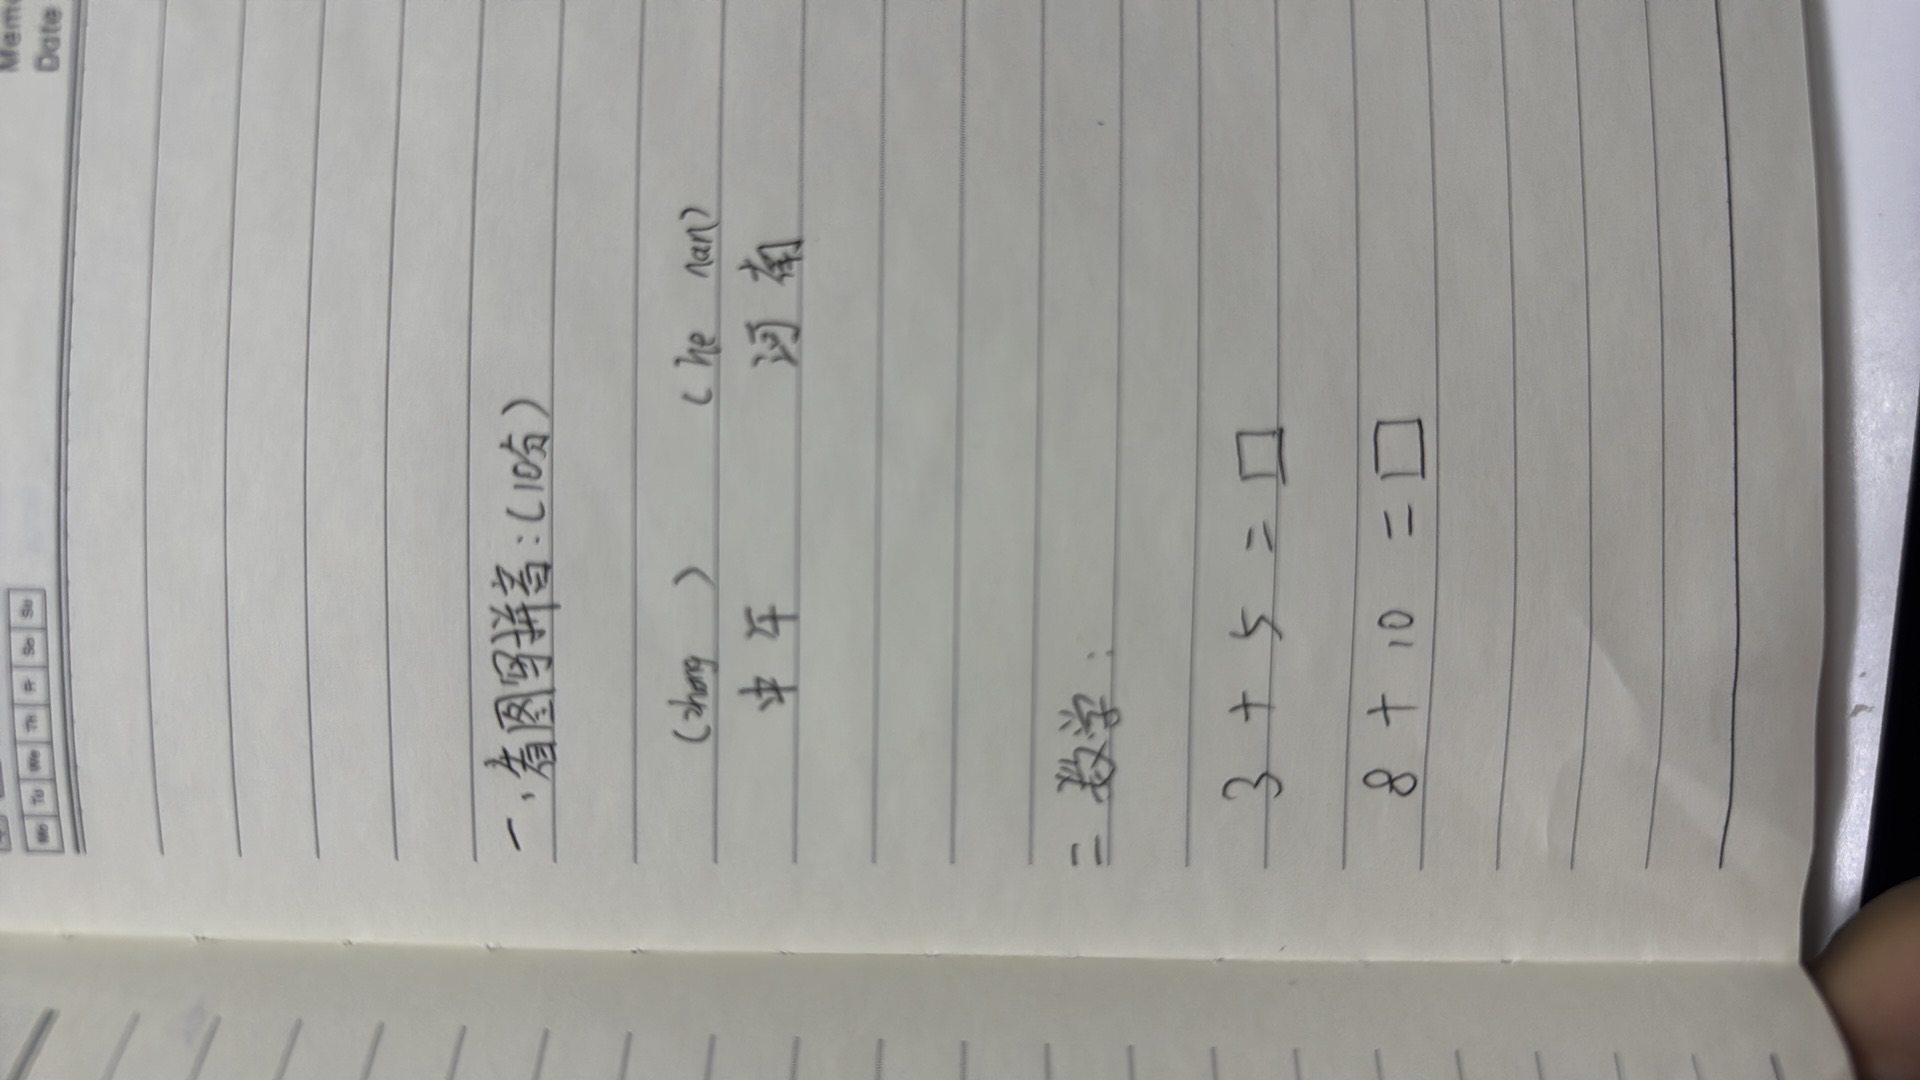 Memo
Date
Mo Tu We Th Fr Sa Su
一、看图写拼音:(10分)
(zhong ) (he nan)
中午 河南
二 数学:
3 + 5 = □
8 + 10 = □